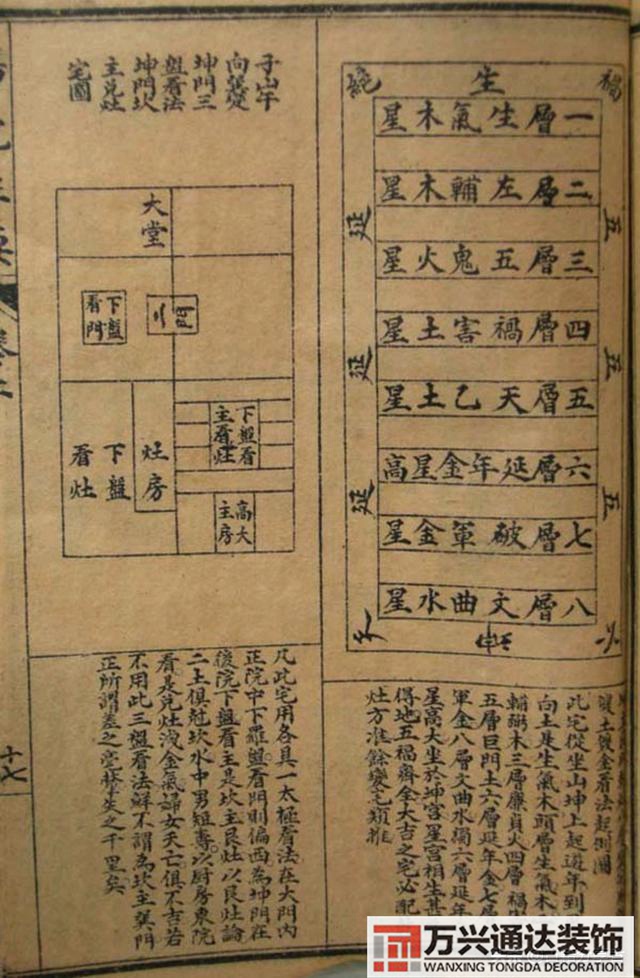 禍
生
一層生氣木星
二層左輔木星
三層五鬼火星
四層禍害土星
五層天乙土星
六層延年金星高
七層破軍金星
八層文曲水星
五
五
五
延
延
延
此宅從坐山坤上起延年到
向上是生氣木頭層生氣木
輔弼木三層廉貞火四層禍
五層巨門土六層延年金七層
軍金八層文曲水獨六層延年
星高大坐於坤宮星宮相生甚
得地五福齊全大吉之宅必配
灶方准餘變宅類推
子山午
向巽變
坤門三
盤看法
坤門坎
主兌灶
宅圖
大堂
門
下盤
看門
灶房
下盤
看灶
下盤看
主看灶
高大
主房
凡此宅用各具一太極看法在大門內
正院中下羅盤看門則偏西為坤門在
後院下盤看主是坎主艮灶以艮灶論
二土俱尅坎水中男短壽以厨房東院
看是兌灶洩金氣婦女夭亡俱不吉若
不用此三盤看法鮮不謂為坎主巽門
正所謂差之毫釐失之千里矣
十七
万兴通达装饰
WANXING TONGDA DECORATION